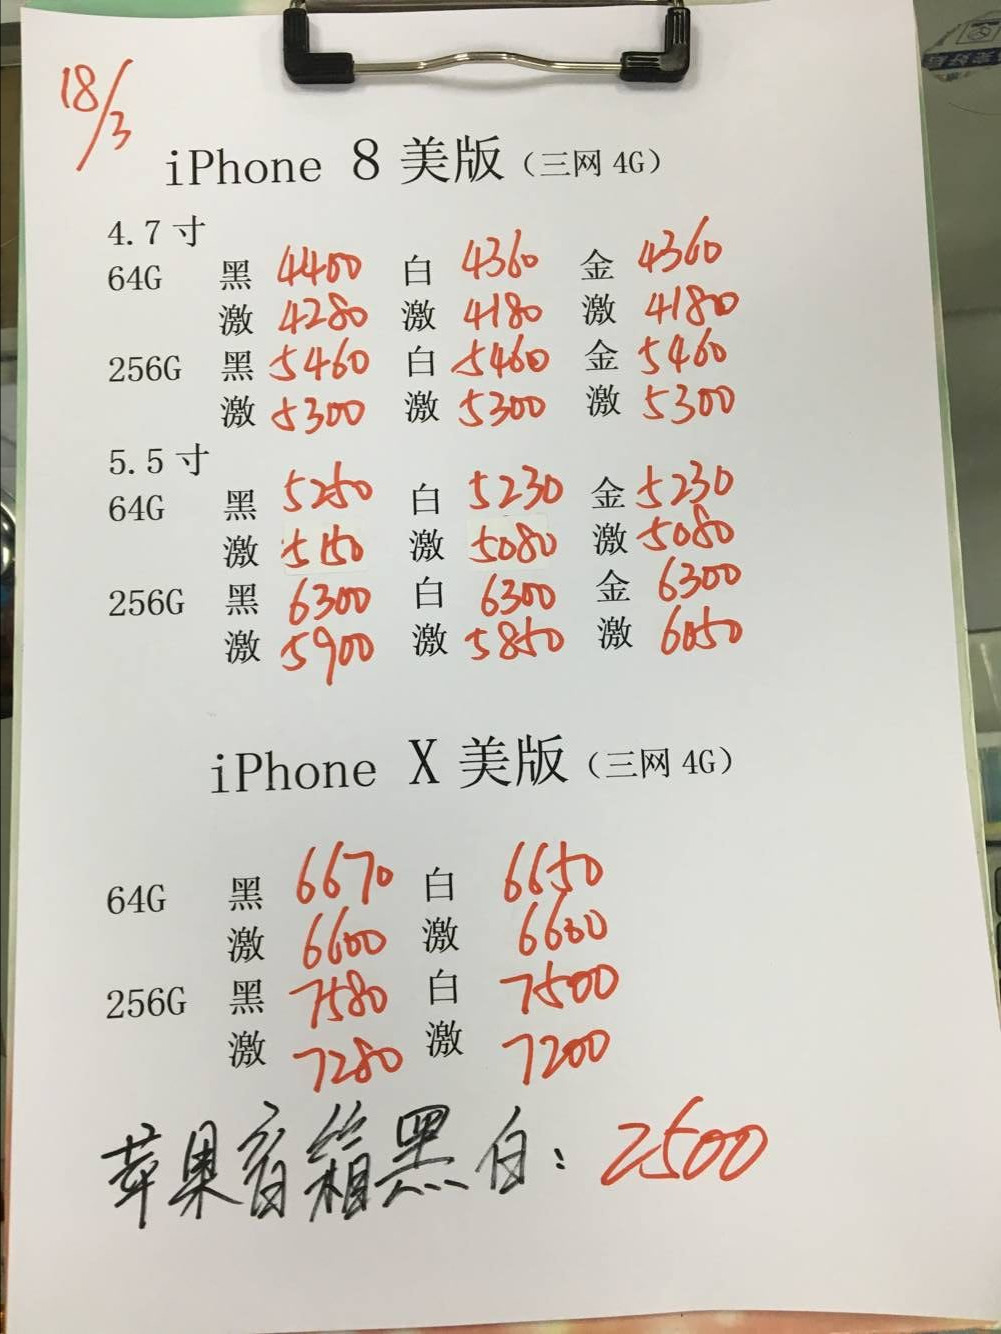 18/3
iPhone 8 美版（三网 4G）
4.7 寸
64G 黑 4400 白 4360 金 4360
激 4280 激 4180 激 4180
256G 黑 5460 白 5460 金 5460
激 5300 激 5300 激 5300
5.5 寸
64G 黑 5250 白 5230 金 5230
激 5150 激 5080 激 5080
256G 黑 6300 白 6300 金 6300
激 5900 激 5850 激 6050
iPhone X 美版（三网 4G）
64G 黑 6670 白 6650
激 6600 激 6600
256G 黑 7580 白 7500
激 7280 激 7200
苹果音箱黑白：2500